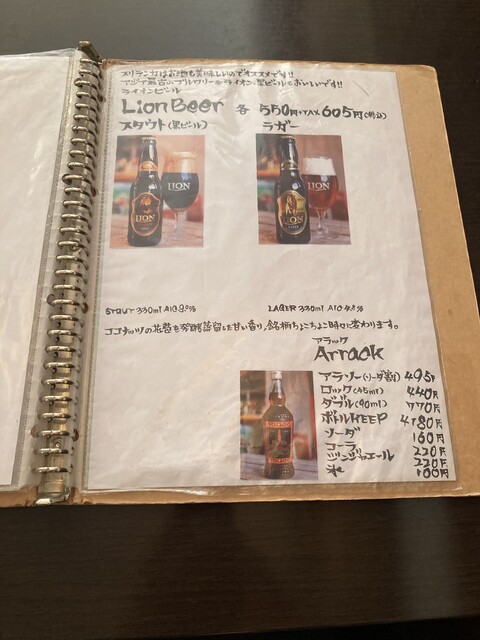 スリランカはお酒も美味しいのでオススメです!!
アジア最古のブルワリーのライオン、黒ビールもおいしいです!!
ライオンビール
Lion Beer 各 550円+TAX 605円(税込)
スタウト(黒ビール) ラガー
LION
LION
LION
LION
STOUT 330ml Alc 8.8% LAGER 330ml Alc 4.8%
ココナッツの花蜜を発酵蒸留した甘い香り、銘柄ちょこちょこ時々変わります。
アラック
Arrack
アラソー(ソーダ割) 495円
ロック(45ml) 440円
ダブル(90ml) 770円
ボトルKEEP 4180円
ソーダ 160円
コーラ 220円
ジンジャエール 220円
氷 100円